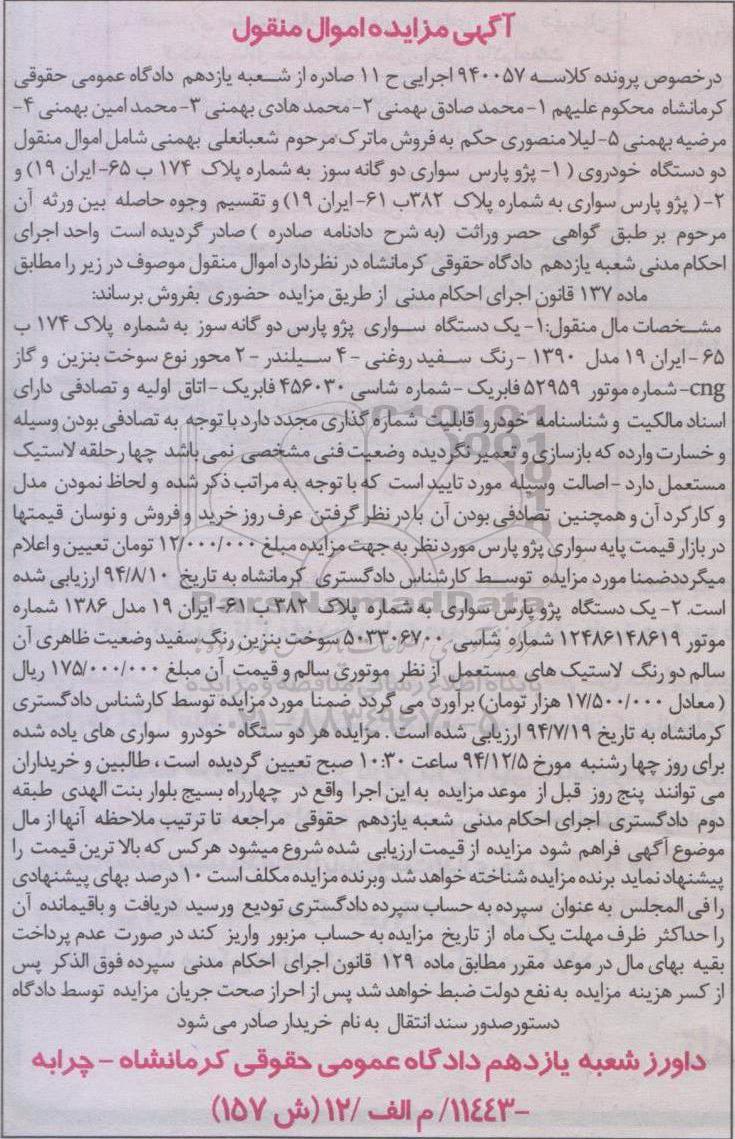 آگهی مزایده اموال منقول
درخصوص پرونده کلاسه ۹۴۰۰۵۷ اجرایی ح ۱۱ صادره از شعبه یازدهم دادگاه عمومی حقوقی
کرمانشاه محکوم علیهم ۱- محمد صادق بهمنی ۲- محمد هادی بهمنی ۳- محمد امین بهمنی ۴-
مرضیه بهمنی ۵- لیلا منصوری حکم به فروش ماترک مرحوم شعبانعلی بهمنی شامل اموال منقول
دو دستگاه خودروی ( ۱- پژو پارس سواری دو گانه سوز به شماره پلاک ۱۷۴ ب ۶۵- ایران ۱۹) و
۲- ( پژو پارس سواری به شماره پلاک ۳۸۲ب ۶۱- ایران ۱۹) و تقسیم وجوه حاصله بین ورثه آن
مرحوم بر طبق گواهی حصر وراثت (به شرح دادنامه صادره ) صادر گردیده است واحد اجرای
احکام مدنی شعبه یازدهم دادگاه حقوقی کرمانشاه در نظر دارد اموال منقول موصوف در زیر را مطابق
ماده ۱۳۷ قانون اجرای احکام مدنی از طریق مزایده حضوری بفروش برساند:
مشخصات مال منقول:۱- یک دستگاه سواری پژو پارس دو گانه سوز به شماره پلاک ۱۷۴ ب
۶۵ - ایران ۱۹ مدل ۱۳۹۰ - رنگ سفید روغنی - ۴ سیلندر - ۲ محور نوع سوخت بنزین و گاز
cng- شماره موتور ۵۲۹۵۹ فابریک - شماره شاسی ۴۵۶۰۳۰ فابریک - اتاق اولیه و تصادفی دارای
اسناد مالکیت و شناسنامه خودرو قابلیت شماره گذاری مجدد دارد با توجه به تصادفی بودن وسیله
و خسارت وارده که بازسازی و تعمیر نگردیده وضعیت فنی مشخصی نمی باشد چهار حلقه لاستیک
مستعمل دارد - اصالت وسیله مورد تایید است که با توجه به مراتب ذکر شده و لحاظ نمودن مدل
و کارکرد آن و همچنین تصادفی بودن آن با در نظر گرفتن عرف روز خرید و فروش و نوسان قیمتها
در بازار قیمت پایه سواری پژو پارس مورد نظر به جهت مزایده مبلغ ۱۲/۰۰۰/۰۰۰ تومان تعیین و اعلام
میگردد ضمنا مورد مزایده توسط کارشناس دادگستری کرمانشاه به تاریخ ۹۴/۸/۱۰ ارزیابی شده
است. ۲- یک دستگاه پژو پارس سواری به شماره پلاک ۳۸۲ ب ۶۱- ایران ۱۹ مدل ۱۳۸۶ شماره
موتور ۱۲۴۸۶۱۴۸۶۱۹ شماره شاسی ۵۰۳۳۰۶۷۰۰ سوخت بنزین رنگ سفید وضعیت ظاهری آن
سالم دو رنگ لاستیک های مستعمل از نظر موتوری سالم و قیمت آن مبلغ ۱۷۵/۰۰۰/۰۰۰ ریال
( معادل ۱۷/۵۰۰/۰۰۰ هزار تومان) برآورد می گردد ضمنا مورد مزایده توسط کارشناس دادگستری
کرمانشاه به تاریخ ۹۴/۷/۱۹ ارزیابی شده است . مزایده هر دو ستگاه خودرو سواری های یاده شده
برای روز چهارشنبه مورخ ۹۴/۱۲/۵ ساعت ۱۰:۳۰ صبح تعیین گردیده است ، طالبین و خریداران
می توانند پنج روز قبل از موعد مزایده به این اجرا واقع در چهارراه بسیج بلوار بنت الهدی طبقه
دوم دادگستری اجرای احکام مدنی شعبه یازدهم حقوقی مراجعه تا ترتیب ملاحظه آنها از مال
موضوع آگهی فراهم شود مزایده از قیمت ارزیابی شده شروع میشود هر کس که بالا ترین قیمت را
پیشنهاد نماید برنده مزایده شناخته خواهد شد وبرنده مزایده مکلف است ۱۰ درصد بهای پیشنهادی
را فی المجلس به عنوان سپرده به حساب سپرده دادگستری تودیع ورسید دریافت و باقیمانده آن
را حداکثر ظرف مهلت یک ماه از تاریخ مزایده به حساب مزبور واریز کند در صورت عدم پرداخت
بقیه بهای مال در موعد مقرر مطابق ماده ۱۲۹ قانون اجرای احکام مدنی سپرده فوق الذکر پس
از کسر هزینه مزایده به نفع دولت ضبط خواهد شد پس از احراز صحت جریان مزایده توسط دادگاه
دستور صدور سند انتقال به نام خریدار صادر می شود
داورز شعبه یازدهم دادگاه عمومی حقوقی کرمانشاه - چرابه
-۱۱۴۴۳/ م الف /۱۲ (ش ۱۵۷)
ParsNamadData
پایگاه اطلاع رسانی مناقصه و مزایده
۰۲۱-۸۸۳۴۹۶۷۰-۵